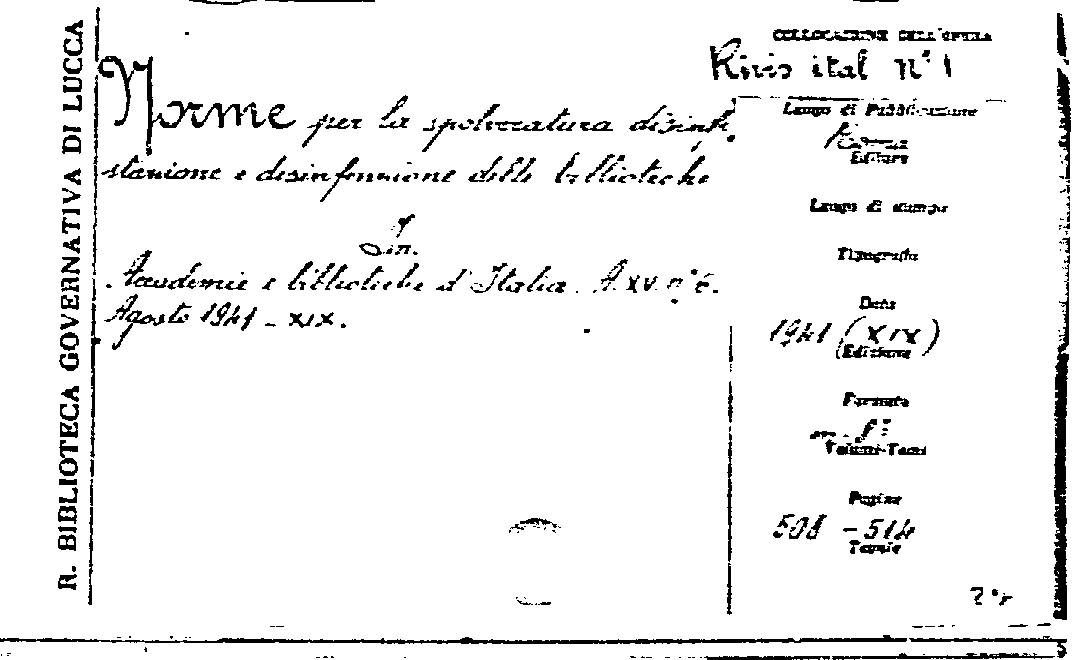 R. BIBLIOTECA GOVERNATIVA DI LUCCA
COLLOCAZIONE DELL'OPERA
Rivis ital n° 1
Norme per la spolveratura disinfe
stazione e disinfezione delle biblioteche
In.
Accademie e biblioteche d'Italia. A. XV. n° 6.
Agosto 1941 - XIX.
Luogo di Pubblicazione
Editore
Luogo di stampa
Tipografia
Data
1941 (XIX)
(Edizione
Formato
8°
Volumi-Tomi
Pagine
508 - 514
Tavole